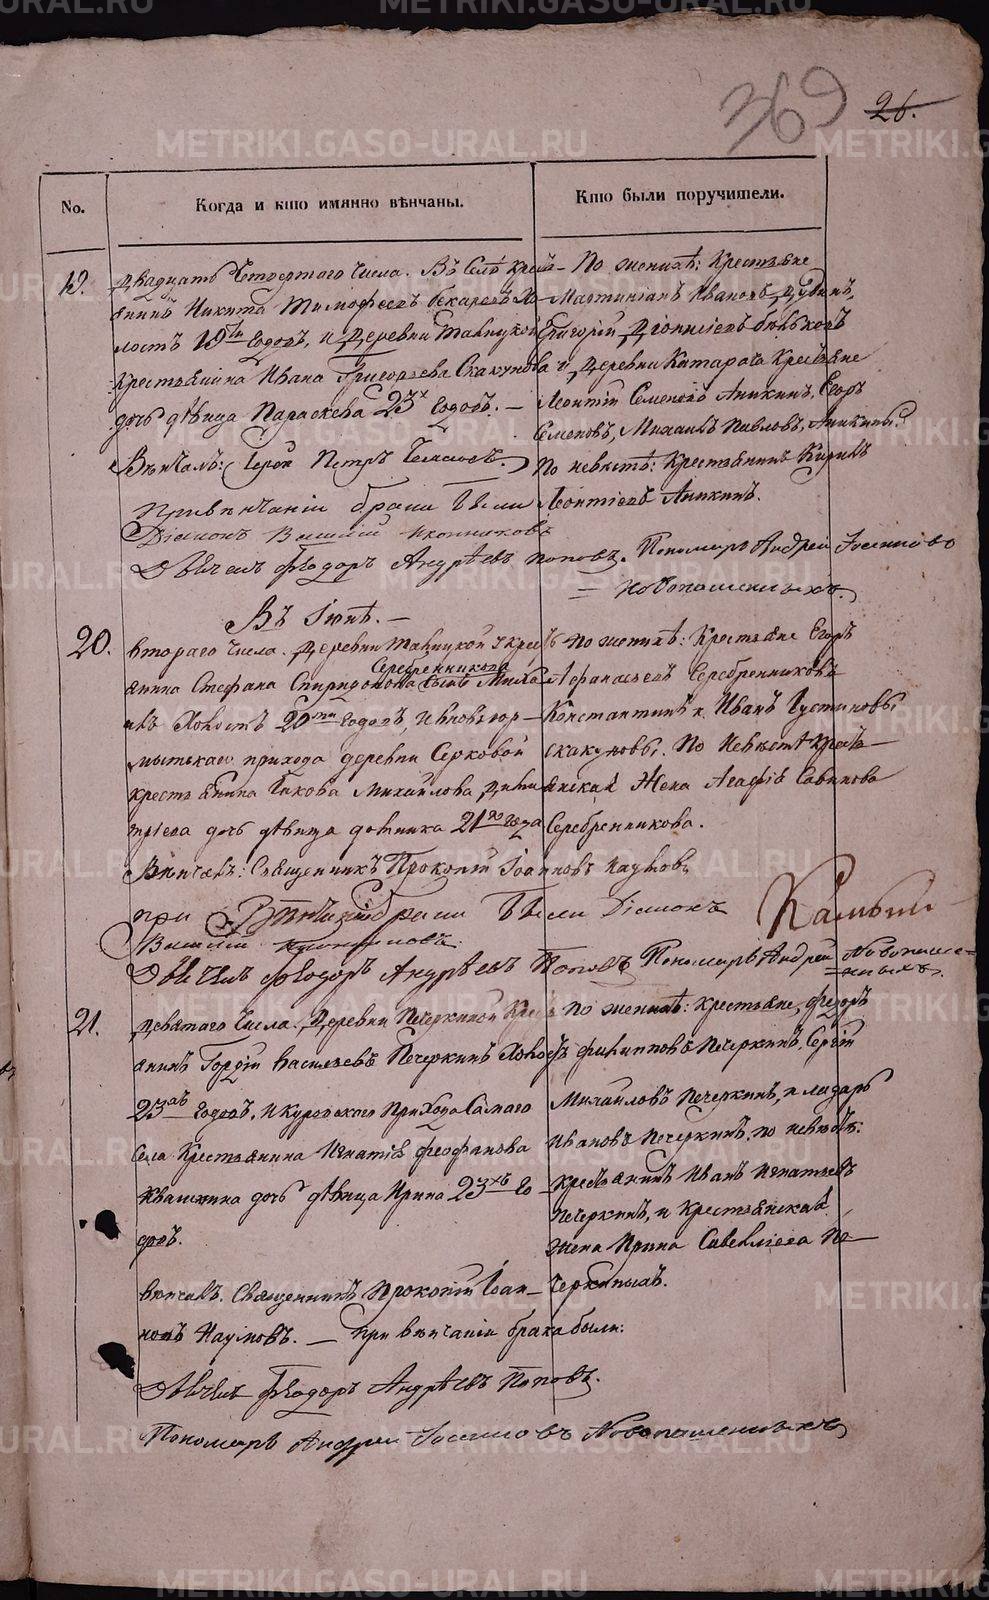 369 26.
No. Когда и кто имянно вѣнчаны. Кто были поручители.
19.
Двадцать Четвертого Числа. Въ Селѣ Крестья-
янинъ Никита Тимофеевъ Хо-
лостъ 19ти Годовъ, и Деревни Тавицкой
Крестьянина Ивана Григорьева Скакунова
дочь дѣвица Параскева 23х Годовъ. —
Вѣнчалъ: Іерей Петръ
При вѣнчаніи брака Были
Діаконъ Василій Иконниковъ
Дьячекъ Феодоръ Андрѣевъ Поповъ. Пономарь Андрей Іосиповъ
= Новопашенныхъ.
По женихѣ: Крестьяне
Мартиніанъ Ивановъ
Григорій Діонисіевъ
и Деревни Катарача Крестьяне
Леонтій Семеновъ Аникинъ, Егоръ
Семеновъ, Михаилъ Павловъ, Аникины.
По невѣстѣ: Крестьянинъ Кирилъ
Леонтіевъ Аникинъ.
Въ Іюнѣ. —
20.
втораго Числа. Деревни Тавицкой у крес
Серебренникова
янина Стефана Спиридонова сынъ Миха
илъ Холостъ 20ти Годовъ, и Новоюр-
мытскаго прихода деревни Серковой
крестьянина Іакова Михайлова Дими
тріева дочь дѣвица Домника 21го Года
Вѣнчалъ: Священникъ Прокопій Іоанновъ Наумовъ
при Вѣнчаніи брака Были Діаконъ
Василій Иконниковъ
Дьячекъ Феодоръ Андрѣевъ Поповъ Пономарь Андрей Новопаше-
нныхъ.
По женихѣ: Крестьяне Егоръ
Афанасьевъ Серебренниковъ
Константинъ и Иванъ Іустиновы
Скакуновы. По Невѣстѣ Кресть-
янская Жена Агафія Савинова
Серебренникова.
21.
Девятаго Числа. Деревни Печеркиной Крес
янинъ Гордій Васильевъ Печеркинъ Холостъ
23хъ Годовъ, и Куровского Прихода Самаго
Села Крестьянина Игнатія Феофанова
Квашнина дочь дѣвица Ирина 23хъ Го-
довъ.
вѣнчалъ. Священникъ Прокопій Іоан-
новъ Наумовъ. — При вѣнчаніи брака были:
Дьячекъ Феодоръ Андрѣевъ Поповъ.
Пономарь Андрей Іосиповъ Новопашенныхъ
По женихѣ: крестьяне, Федоръ
Филипповъ Печеркинъ, Сергій
Михаиловъ Печеркинъ, и
Ивановъ Печеркинъ, по невѣстѣ:
крестьянинъ Иванъ Игнатьевъ
Печеркинъ, и Крестьянская
Жена Ирина Савельіева Пе-
черкиныхъ.
METRIKI.GASO-URAL.RU